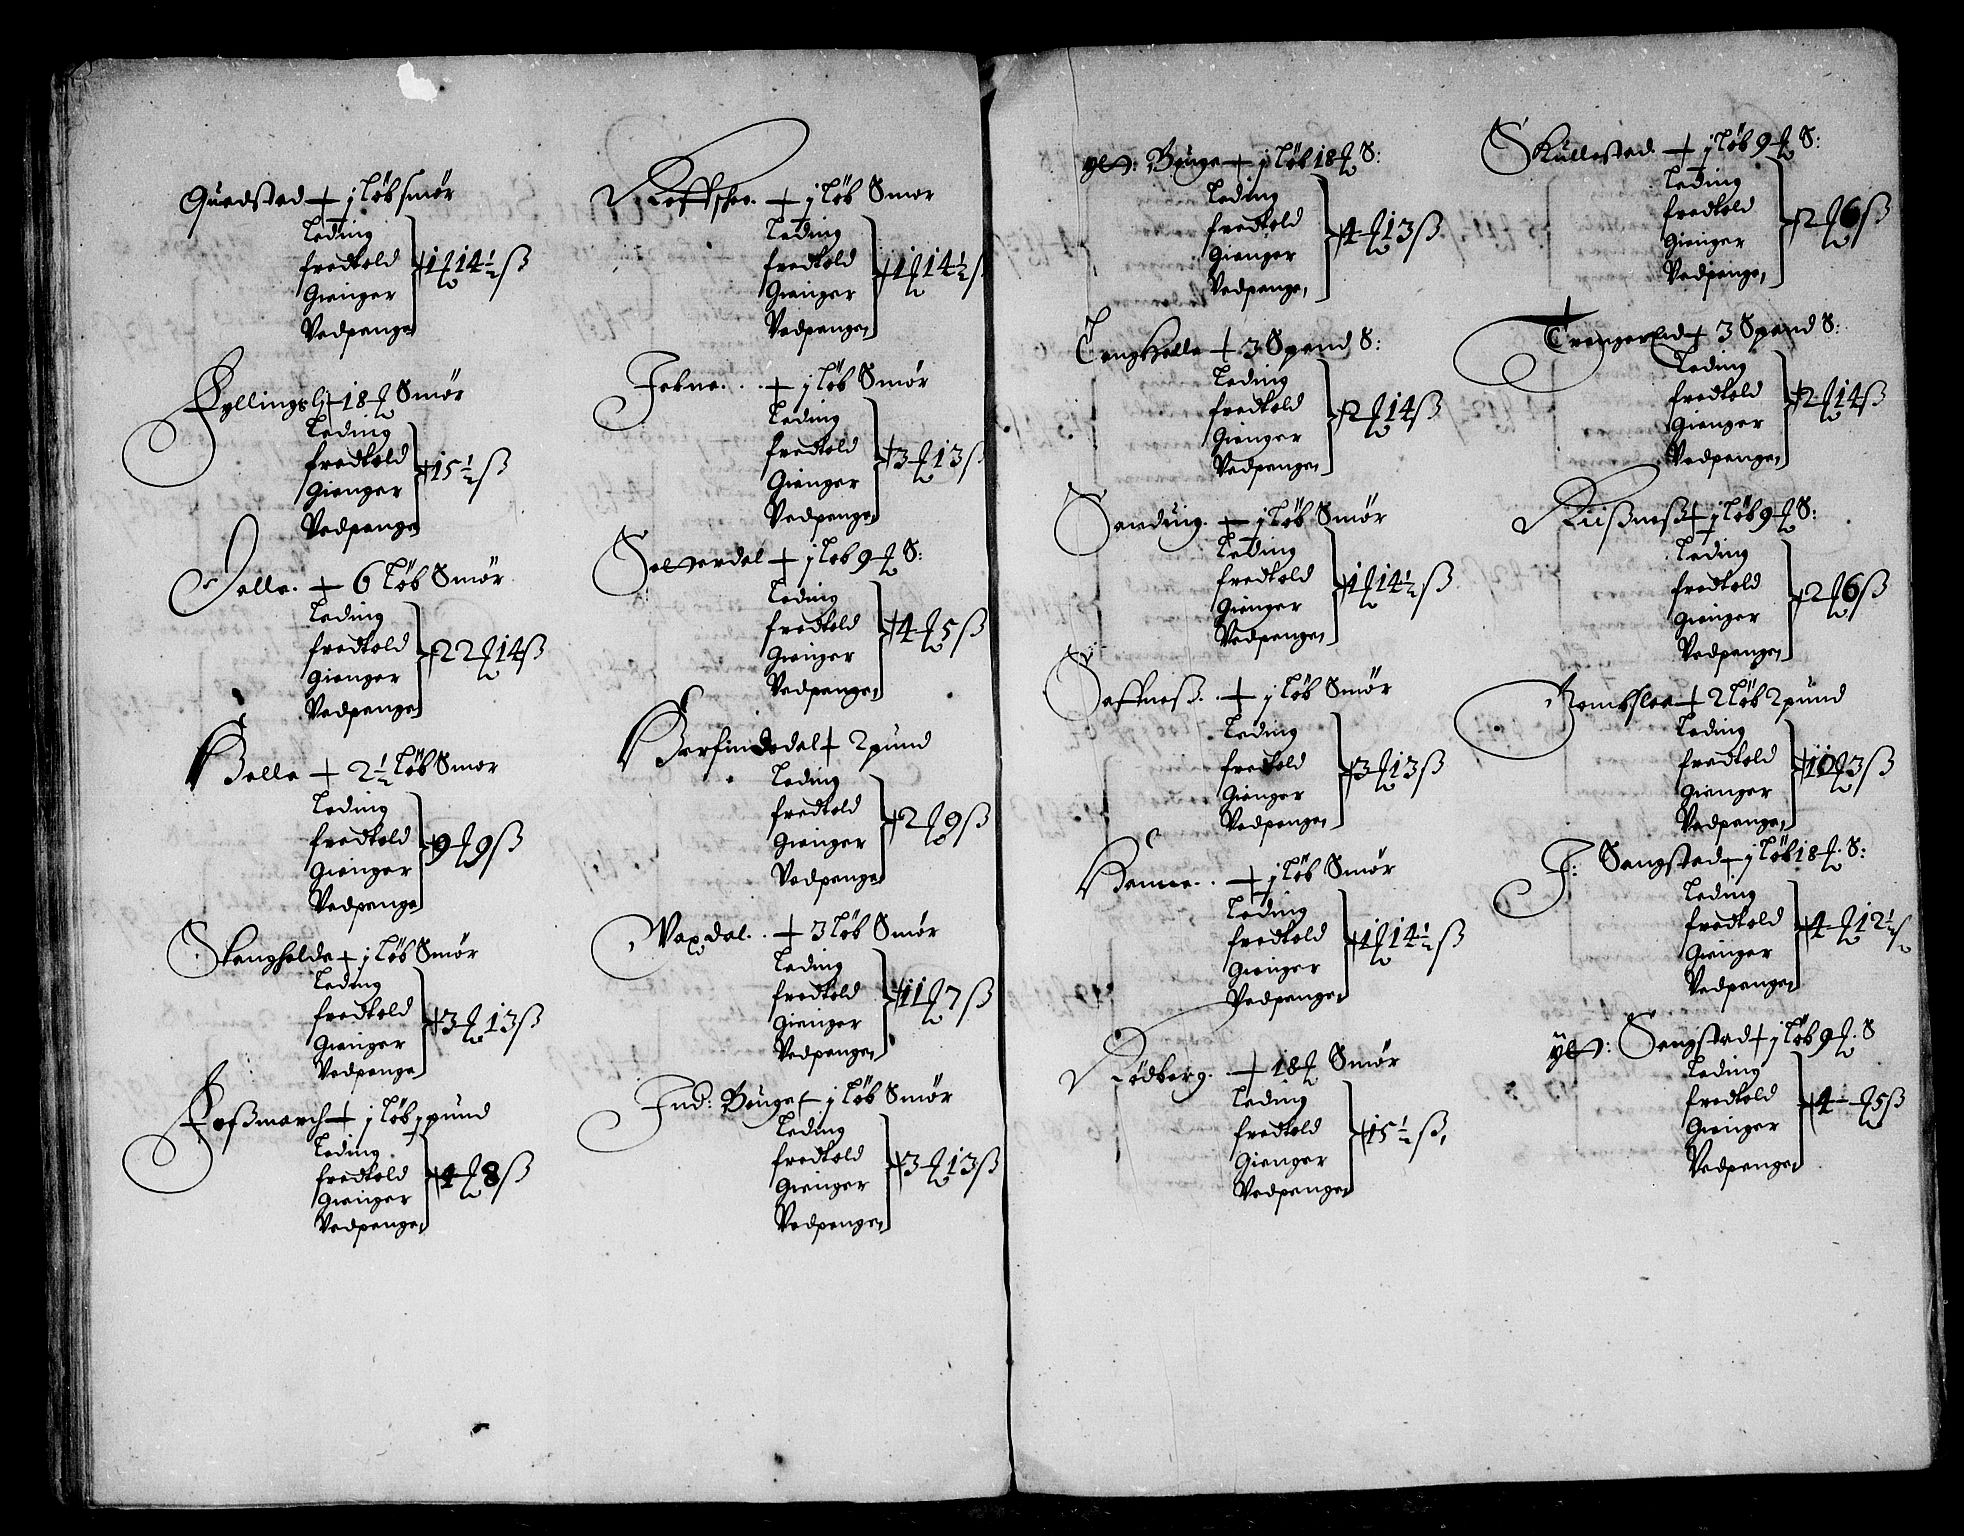 Quedstad + j løb smør
Leding
fredtold
Gienger
Vedpenge
+ 1 ₰ 14½ ß
Fyllingsli + 18 ₰ Smør
Leding
fredtold
Gienger
Vedpenge
+ 15½ ß
Dalle. + 6 løb Smør
Leding
fredtold
Gienger
Vedpenge
+ 22 ₰ 14 ß
Bolla + 2½ løb Smør
Leding
fredtold
Gienger
Vedpenge
+ 9 ₰ 9 ß
Stanghelle + j løb Smør
Leding
fredtold
Gienger
Vedpenge
+ 3 ₰ 13 ß
Foßmarch + j løb j pund
Leding
fredtold
Gienger
Vedpenge
+ 4 ₰ 8 ß
+ j løb Smør
Leding
fredtold
Gienger
Vedpenge
+ 1 ₰ 14½ ß
Jebne. . + j løb Smør
Leding
fredtold
Gienger
Vedpenge
+ 3 ₰ 13 ß
+ j løb 9 ₰ S:
Leding
fredtold
Gienger
Vedpenge
+ 4 ₰ 5 ß
Herfindsdal + 2 pund
Leding
fredtold
Gienger
Vedpenge
+ 2 ₰ 9 ß
Vaxdal. . + 3 løb Smør
Leding
fredtold
Gienger
Vedpenge
+ 11 ₰ 7 ß
Ind: Bouge + j løb Smør
Leding
fredtold
Gienger
Vedpenge
+ 3 ₰ 13 ß
ÿtt: Bouge + j løb 18 ₰ S:
Leding
fredtold
Gienger
Vedpenge
+ 4 ₰ 13 ß
Tenghelle + 3 Spand S:
Leding
fredtold
Gienger
Vedpenge
+ 2 ₰ 14 ß
+ j løb Smør
Leding
fredtold
Gienger
Vedpenge
+ 1 ₰ 14½ ß
+ j løb Smør
Leding
fredtold
Gienger
Vedpenge
+ 3 ₰ 13 ß
+ j løb Smør
Leding
fredtold
Gienger
Vedpenge
+ 1 ₰ 14½ ß
Rødberg. + 18 ₰ Smør
Leding
fredtold
Gienger
Vedpenge
+ 15½ ß
Skullestad. + j løb 9 ₰ S:
Leding
fredtold
Gienger
Vedpenge
+ 2 ₰ 6 ß
Trengereid + 3 Spand S:
Leding
fredtold
Gienger
Vedpenge
+ 2 ₰ 14 ß
Risneß + j løb 9 ₰ S:
Leding
fredtold
Gienger
Vedpenge
+ 2 ₰ 6 ß
Rombsloe + 2 løb 2 pund
Leding
fredtold
Gienger
Vedpenge
+ 10 ₰ 3 ß
J: Sangstad + j løb 18 ₰. S:
Leding
fredtold
Gienger
Vedpenge
+ 4 ₰ 12½ ß
ÿtt: Sangstad + j løb 9 ₰. S
Leding
fredtold
Gienger
Vedpenge
+ 4 ₰ 5 ß